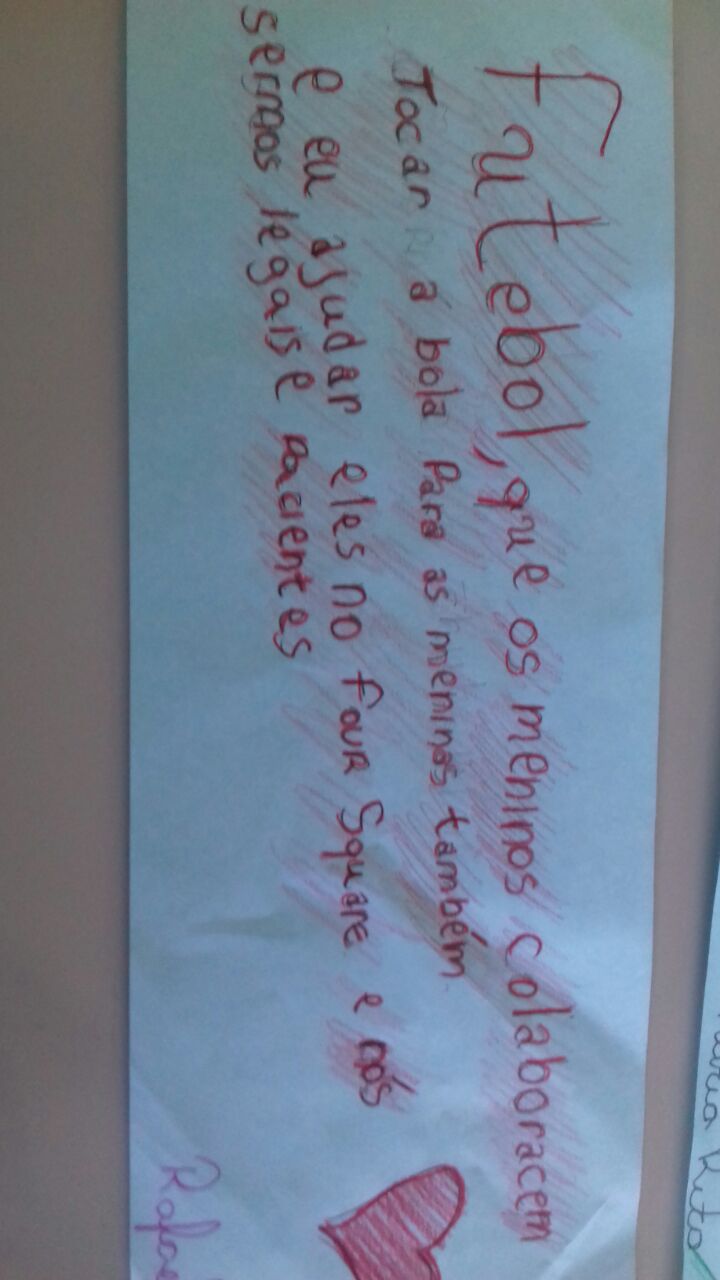 Futebol, que os meninos colaboracem
Tocar a bola Para as meninas também
e eu ajudar eles no Four Square e nós
sermos legais e
Rafae